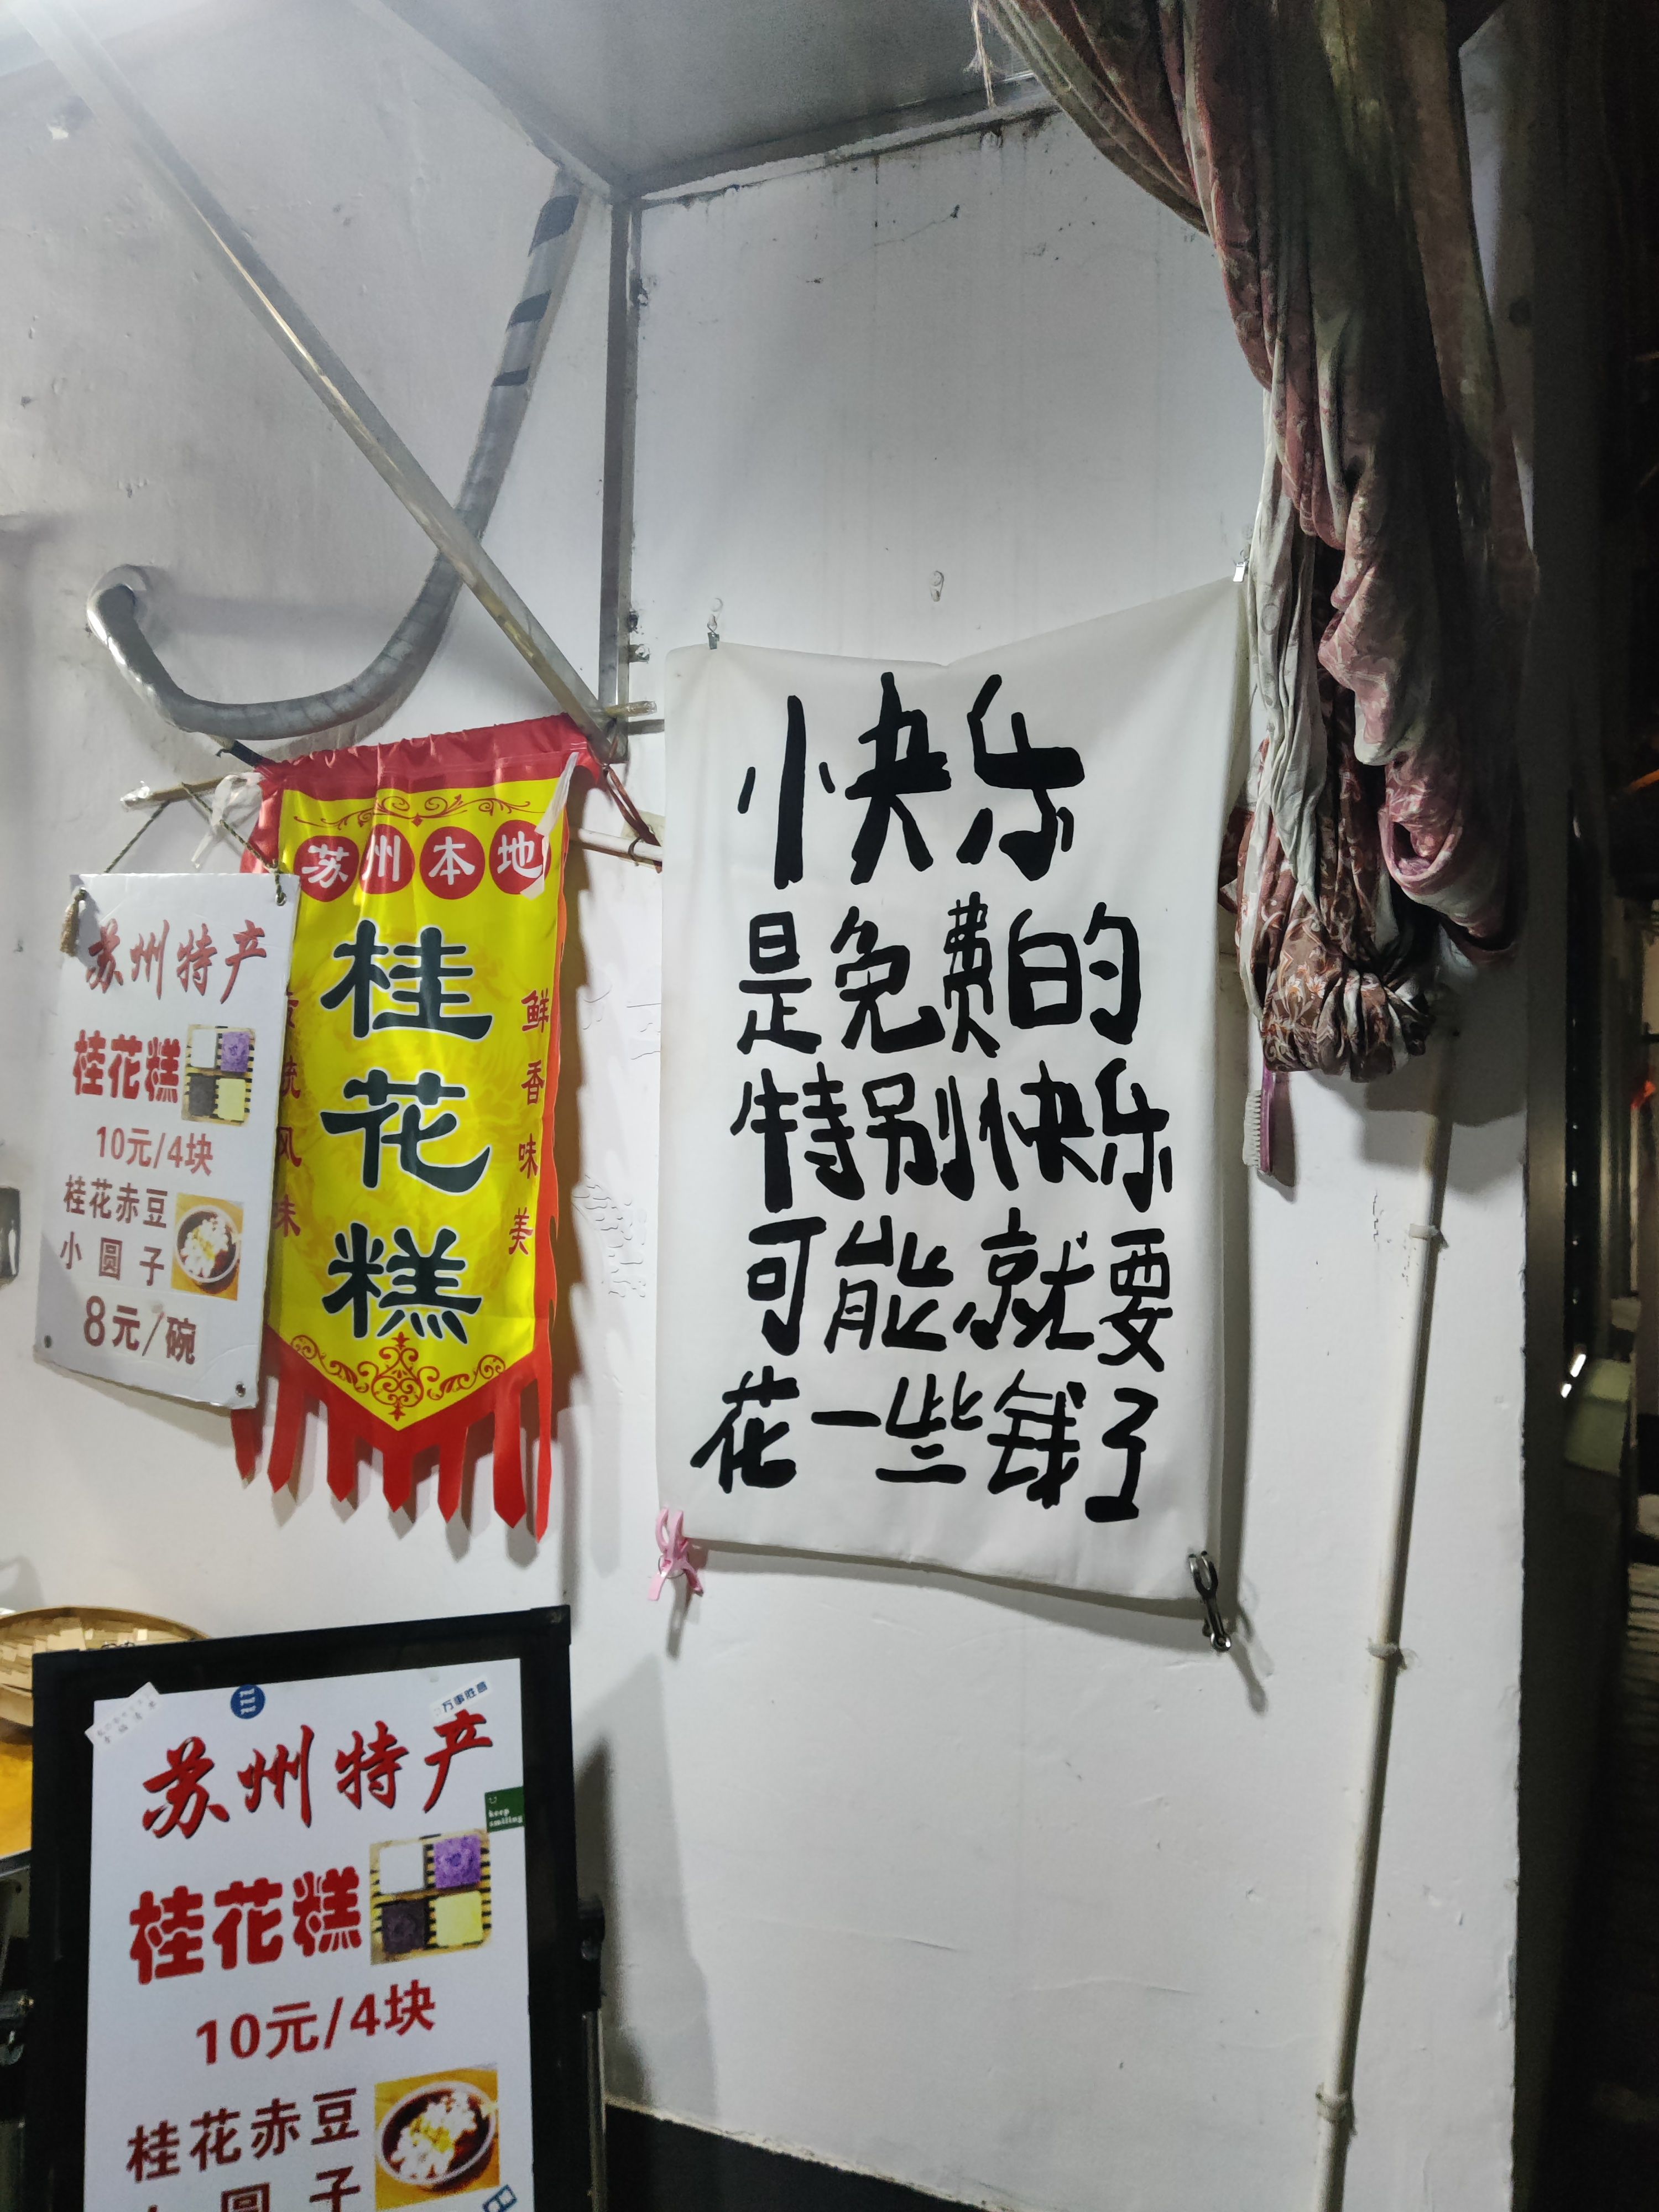 苏州特产
桂花糕
10元/4块
桂花赤豆
小圆子
8元/碗
苏州本地
桂花糕
统风味
鲜香味美
快乐
是免费的
特别快乐
可能就要
花一些钱了
万事胜意
苏州特产
keep
smiling
桂花糕
10元/4块
桂花赤豆
圆子